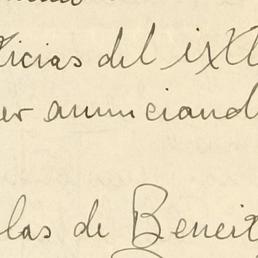 icias del ixt
er anunciand
las de Beneit